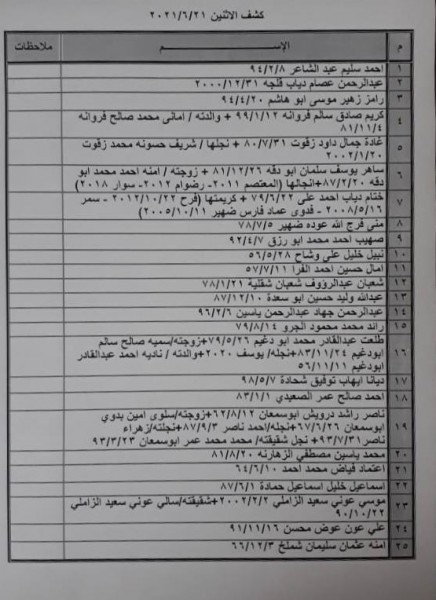 كشف الاثنين ٢٠٢١/٦/٢١
م الإســـم ملاحظات
١ احمد سليم عبد الشاعر ٩٤/٢/٨
٢ عبدالرحمن عصام دياب قلجه ٢٠٠٠/١٢/٣١
٣ رامز زهير موسى ابو هاشم ٩٤/٤/٢٠
٤ كريم صادق سالم فروانه ٩٩/١/١٢ + والدته / امانى محمد صالح فروانه
٨١/١١/٤
٥ غادة جمال داود زقوت ٨٠/٧/٣١ + نجلها / شريف حسونه محمد زقوت
٢٠٠٢/١/٢٠
٦ ساهر يوسف سلمان ابو دقه ٨١/١٢/٢٦ + زوجته / امنه احمد محمد ابو
دقه ٨٧/٢/٢٠+انجالها (المعتصم ٢٠١١- رضوام ٢٠١٢- سوار ٢٠١٨)
٧ ختام دياب احمد على ٧٩/٦/٢٢ + كريمتها (فرح ٢٠١٢/١٠/٢٢ - سمر
٢٠٠٨/٥/١٦ - فدوى عماد فارس ضهير ٢٠٠٥/١٠/١١)
٨ منى فرج الله عوده ضهير ٧٨/٧/٥
٩ صهيب احمد محمد ابو رزق ٩٢/٤/٧
١٠ نبيل خليل على وشاح ٥٦/٥/٢٨
١١ امال حسين احمد الفرا ٥٧/٧/١١
١٢ شعبان عبدالرؤوف شعبان شقلية ٧٨/١/٢١
١٣ عبدالله وليد حسين ابو سعدة ٨٧/١٢/١٠
١٤ عبدالرحمن جهاد عبدالرحمن ياسين ٩٦/٢/٦
١٥ رائد محمد محمود الجرو ٧٩/٨/١٤
١٦ طلعت عبدالقادر محمد ابو دغيم ٧٩/٥/٢٦+زوجته/سميه صالح سالم
ابودغيم ٨٣/١١/٢٤+نجله/ يوسف ٢٠٢٠+والدته / ناديه احمد عبدالقادر
ابودغيم ٥٦/١١/١١
١٧ ديانا ايهاب توفيق شحادة ٩٨/٥/٧
١٨ احمد صالح عمر الصعيدي ٨٣/١/١
١٩ ناصر راشد درويش ابوسمعان ٦٢/٨/١٢+زوجته/سلوى امين بدوي
ابوسمعان ٦٧/٦/٢٦+نجله/احمد ناصر ٨٧/٩/٣+نجلته/زهراء
ناصر ٩٣/٧/٣١+ نجل شقيقته/ محمد محمد عمر ابوسمعان ٩٣/٣/٢٣
٢٠ محمد ياسين مصطفي الزهارنه ٨١/٨/٢٠
٢١ اعتماد فياض محمد احمد ٦٤/٦/١٠
٢٢ اسماعيل خليل اسماعيل حمادة ٨٧/٦/١
٢٣ موسي عوني سعيد الزاملي ٢٠٠٢/٢/٢+شقيقته/سالي عوني سعيد الزاملي
٩٠/١٠/٢٢
٢٤ علي عون عوض محسن ٩١/١١/١٦
٢٥ امنه عثمان سليمان شملخ ٦٦/١٢/٣